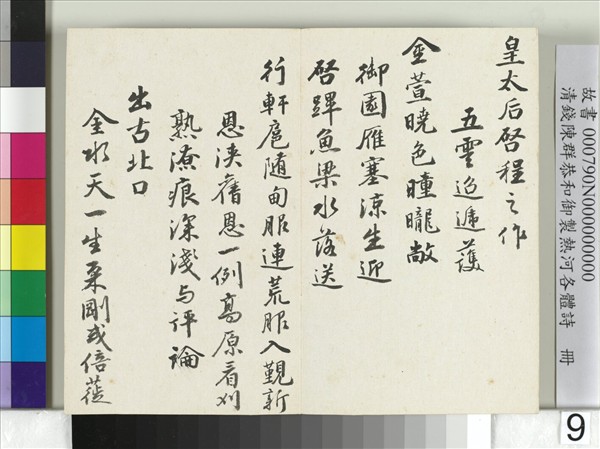 故書 000790N000000000
清錢陳群恭和御製熱河各體詩 冊
皇太后啓程之作
五雲迢遞護
金萱曉色曈曨敞
御園雁塞涼生迎
啓蹕魚梁水落送
行軒扈隨甸服連荒服入覲新
恩浹舊恩一例高原看刈
熟潦痕深淺与評論
出古北口
金水天一生柔剛或倍蓰
9